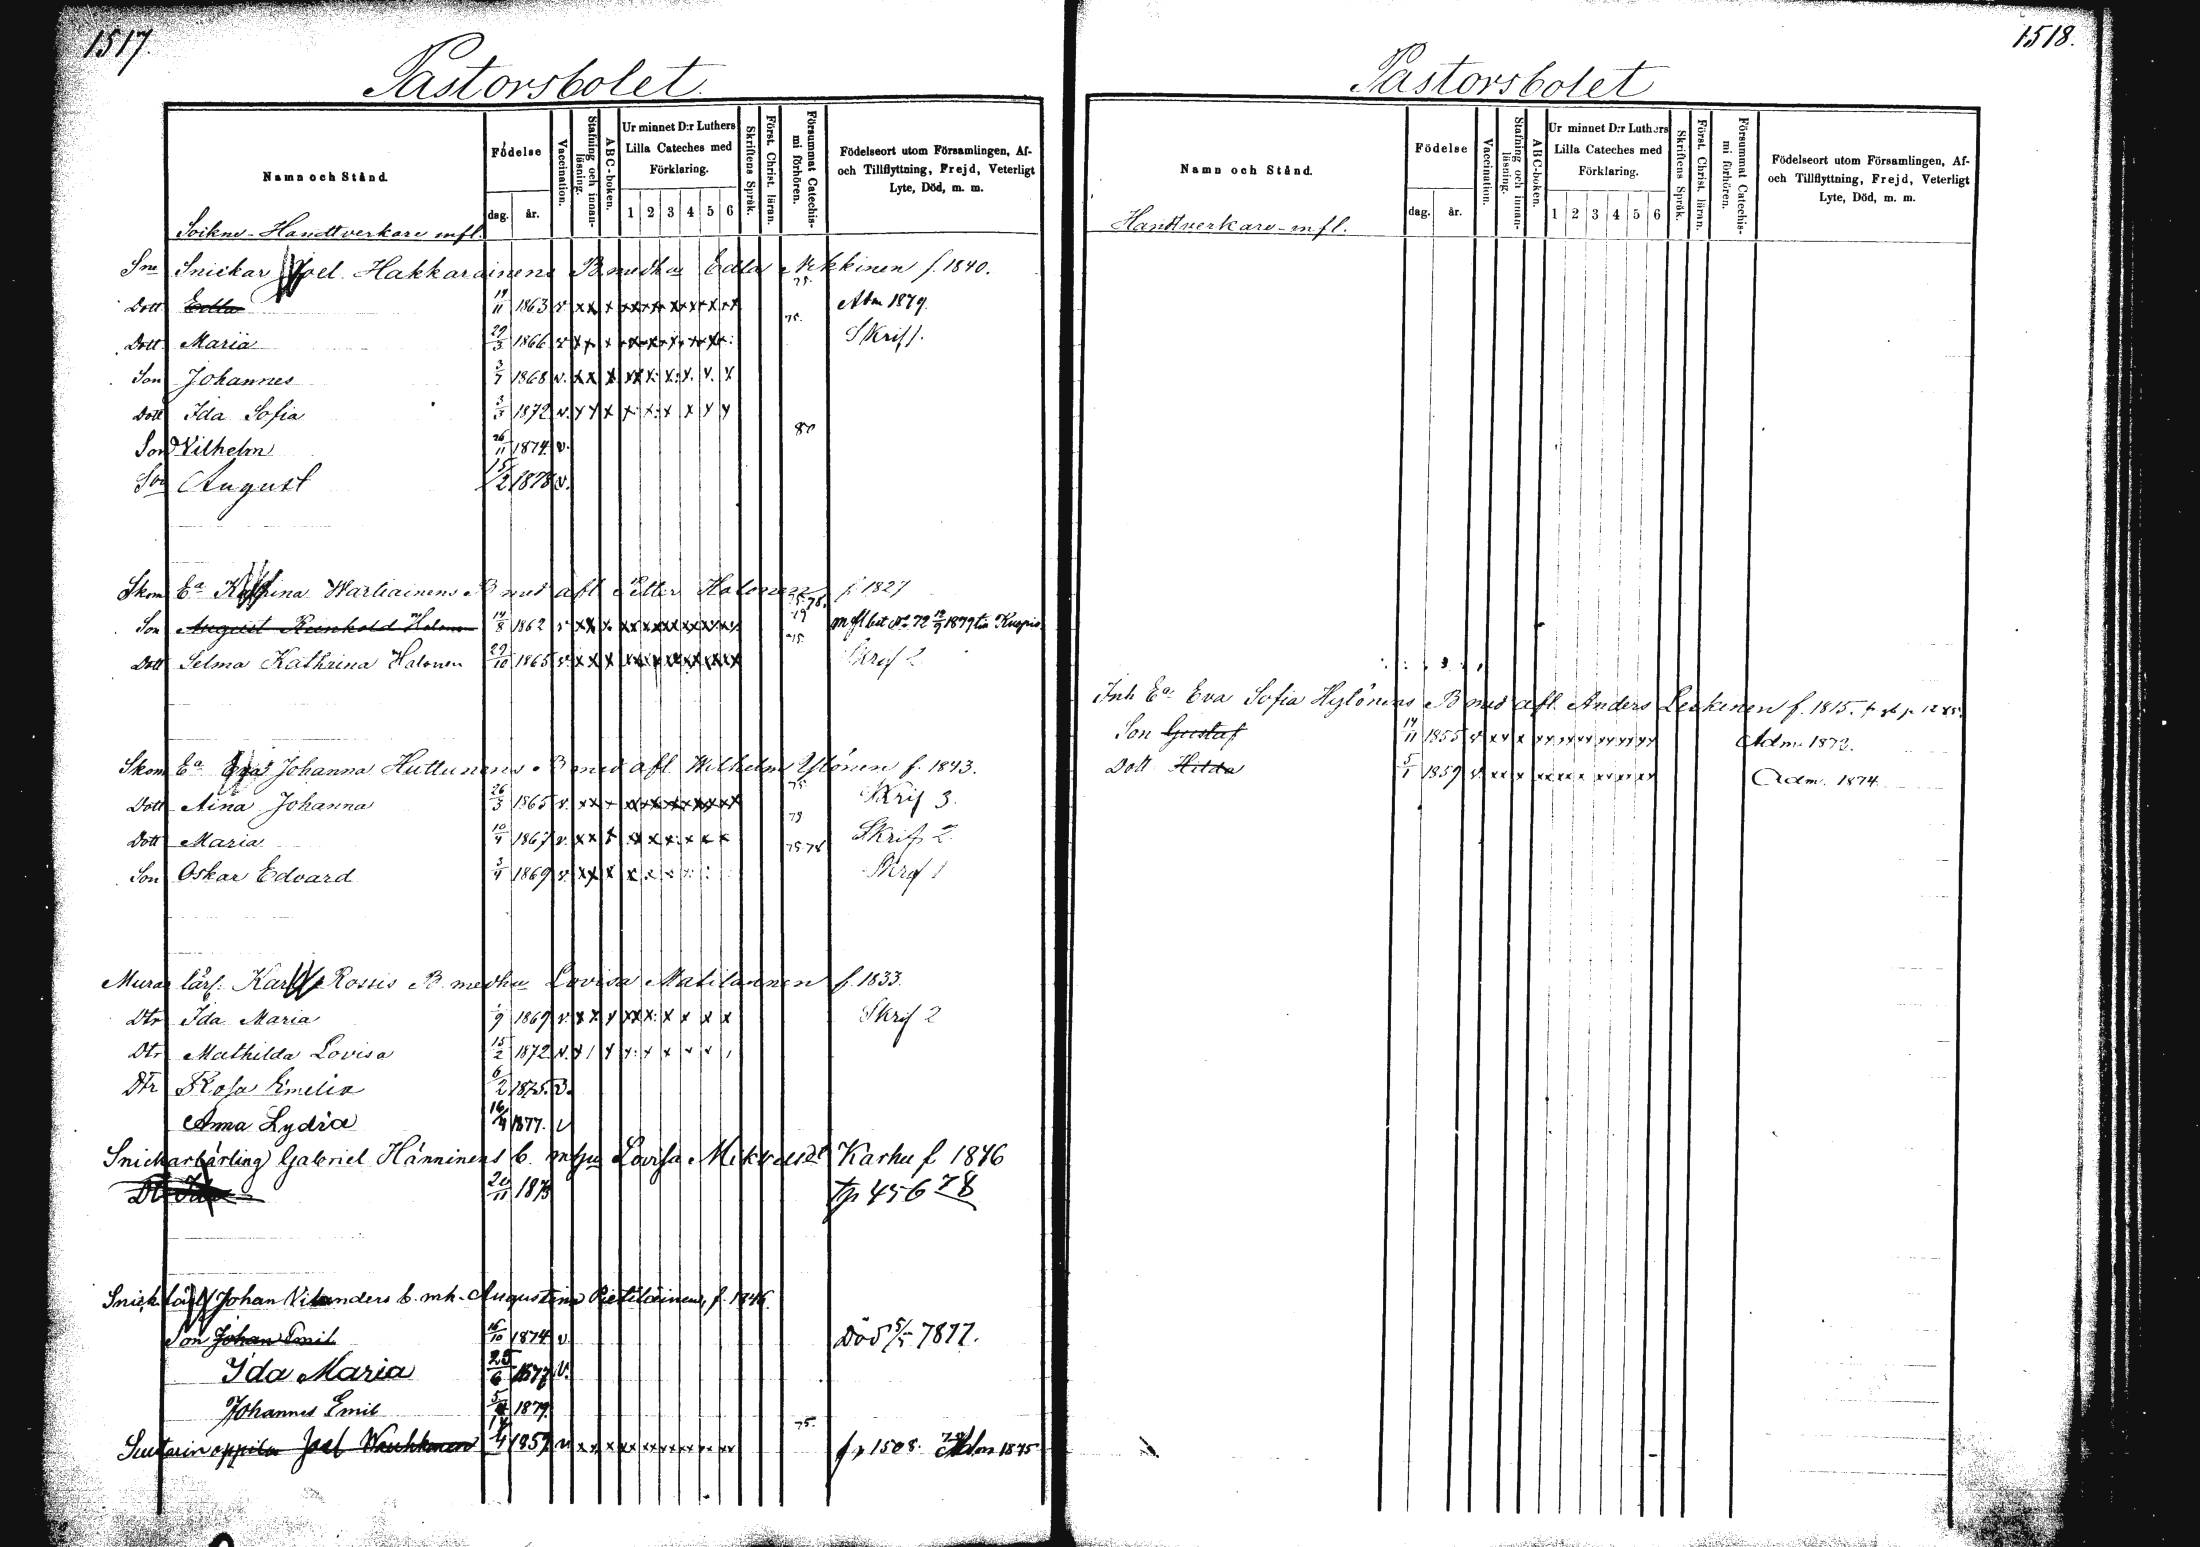 1517.
Pastorsbolet.
Namn och Stånd.
Födelse
dag. år.
Vaccination.
Stafning och innan-läsning.
ABC-boken.
Ur minnet D:r Luthers
Lilla Cateches med
Förklaring.
1 2 3 4 5 6
Skriftens Språk.
Först. Christ. läran.
Försummat Catechis-
mi förhören.
Födelseort utom Församlingen, Af-
och Tillflyttning, Frejd, Veterligt
Lyte, Död, m. m.
Soikne-Handtverkare mfl.
Snickar Joel Hakkarainens B medhu Edla f. 1840.
75.
Dott Edla 11 1863 v x x x Adm 1879.
75.
Dott Maria 29/3 1866 v x x x Skrif 1.
Son Johannes 3/7 1868 v. x x x
Dott Ida Sofia 3/3 1872 v. x x x
80
Son Vilhelm 26/11 1874 v.
Son August 15/2 1878 v.
Skom Ea Kathrina Wartiainens B med afl Petter Halonen f. 1827
75.78.
Son August Reinhold Halonen 14/8 1862 v x x x 79 m fl bet No 72 12/9 1879 till Kuopio.
75.
Dott Selma Kathrina Halonen 29/10 1865 v x x x Skrif 2
Skom Ea Eva Johanna Huttunens B med afl Wilhelm Ylönen f. 1843.
75
Dott Aina Johanna 26/3 1865 v. x x x Skrif 3.
79
Dott Maria 10/4 1867 v. x x x Skrif 2
75 78
Son Oskar Edvard 3/4 1869 v. x x x Skrif 1
Murar lärl. Karl Rossis B. medhu Lovisa Matilainen f. 1833.
Dtr Ida Maria 9 1869 v x x x Skrif 2
Dtr Mathilda Lovisa 15/2 1872 v.
Dtr Rosa Emelia 6/2 1875. v.
Anna Lydia 16/4 1877. v
Snickarlärling Gabriel Hänninens b. mhu Lovisa Mikkelsdt Karhu f 1846
Dt Ida 20/11 1873 tp 456 78
Snick.lärl Johan Vilanders b. mh. Augustina Pietiläinen, f. 1846.
Son Johan Emil 16/10 1874 v. Död 5/5 1877.
Ida Maria 25/6 1877 v.
Johannes Emil 5/4 1879.
75.
Suutarin oppilas Josef Wauhkonen 14/4 1857 v x x x fp 1508. Adm 1875
1518.
Pastorsbolet
Namn och Stånd.
Födelse
dag. år.
Vaccination.
Stafning och innan-läsning.
ABC-boken.
Ur minnet D:r Luthers
Lilla Cateches med
Förklaring.
1 2 3 4 5 6
Skriftens Språk.
Först. Christ. läran.
Försummat Catechis-
mi förhören.
Födelseort utom Församlingen, Af-
och Tillflyttning, Frejd, Veterligt
Lyte, Död, m. m.
Handtverkare-mfl.
Inh Ea Eva Sofia Hylönens B med afl. Anders Leskinen f. 1815.
Son Gustaf 14/11 1855 v x x x Adm. 1872.
Dott Hilda 5/1 1859 v x x x Adm. 1874.